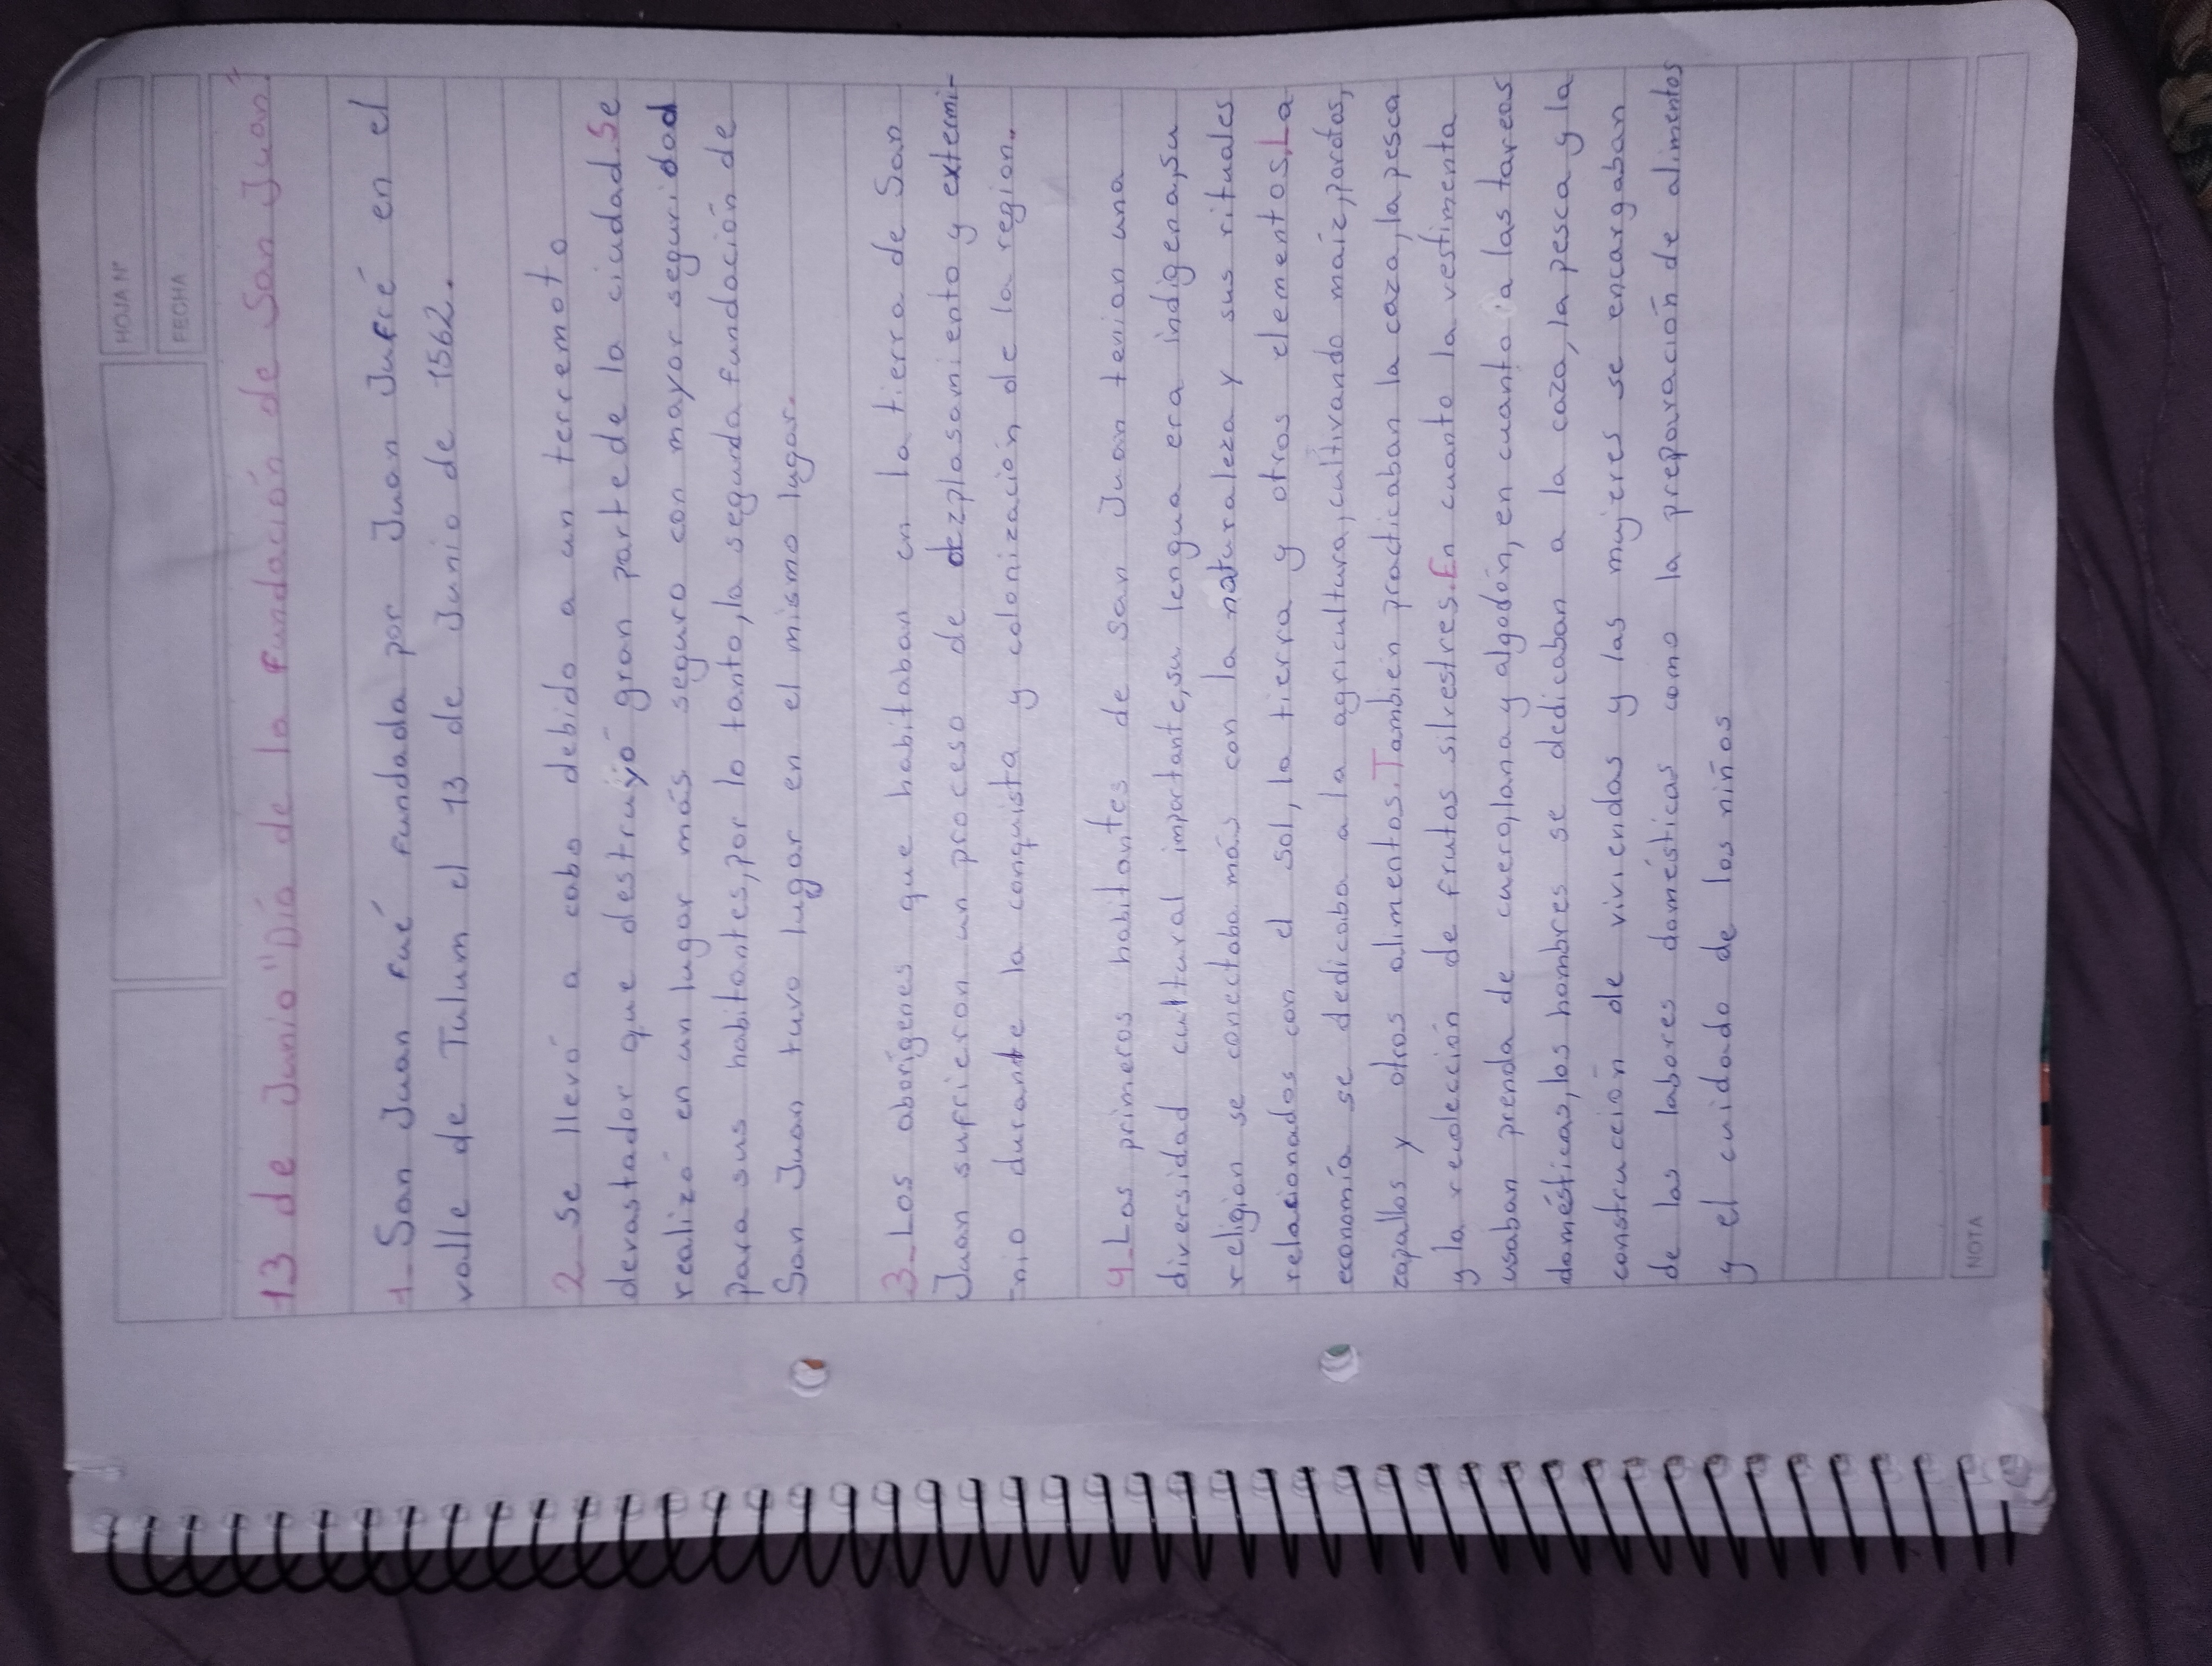 HOJA Nº
FECHA
13 de Junio "Día de la Fundación de San Juan"
1_ San Juan fué fundada por Juan Jufré en el
valle de Tulum el 13 de Junio de 1562.
2_ Se llevó a cabo debido a un terremoto
devastador que destruyó gran parte de la ciudad. Se
realizó en un lugar más seguro con mayor seguridad
para sus habitantes, por lo tanto, la segunda fundación de
San Juan tuvo lugar en el mismo lugar.
3_ Los aborígenes que habitaban en la tierra de San
Juan sufrieron un proceso de dezplasamiento y extermi-
-nio durante la conquista y colonización de la region.
4_ Los primeros habitantes de san Juan tenian una
diversidad cultural importante, su lengua era indigena, su
religion se conectaba más con la naturaleza y sus rituales
relacionados con el sol, la tierra y otros elementos. La
economía se dedicaba a la agricultura, cultivando maíz, porotos,
zapallos y otros alimentos. Tambien practicaban la caza, la pesca
y la recolección de frutos silvestres. En cuanto la vestimenta
usaban prenda de cuero, lana y algodón, en cuanto a las tareas
domésticas, los hombres se dedicaban a la caza, la pesca y la
construcción de viviendas y las mujeres se encargaban
de las labores domésticas como la preparación de alimentos
y el cuidado de los niños
NOTA